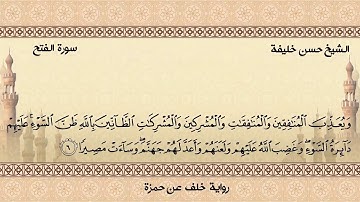 الشيخ حسن خليفة
سورة الفتح
وَيُعَذِّبَ الْمُنَافِقِينَ وَالْمُنَافِقَاتِ وَالْمُشْرِكِينَ وَالْمُشْرِكَاتِ الظَّانِّينَ بِاللَّهِ ظَنَّ السَّوْءِ عَلَيْهِمْ
دَائِرَةُ السَّوْءِ وَغَضِبَ اللَّهُ عَلَيْهِمْ وَلَعَنَهُمْ وَأَعَدَّ لَهُمْ جَهَنَّمَ وَسَاءَتْ مَصِيرًا ٦
رواية خلف عن حمزة